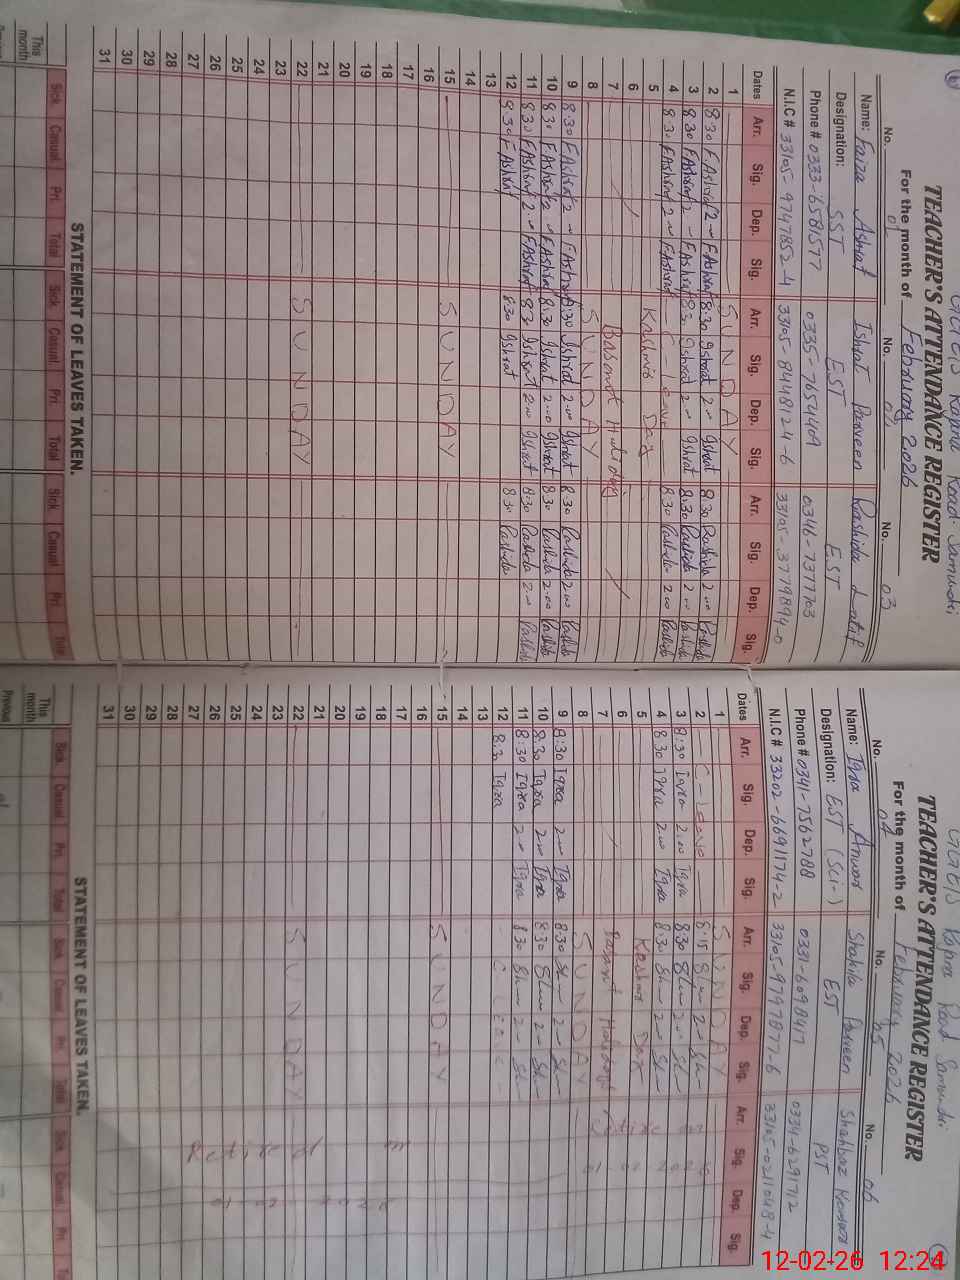 GGHS Kapra Road Samundri
TEACHER'S ATTENDANCE REGISTER
For the month of February 2026
No. 01 No. 02 No. 03
Name: Faiza Ashraf Ishrat Parveen Rashida Latif
Designation: SST EST EST
Phone # 0333-6581577 0335-7654409 0346-7377703
N.I.C # 33105-9747852-4 33105-8448124-6 33105-3779894-0
Dates Arr. Sig. Dep. Sig. Arr. Sig. Dep. Sig. Arr. Sig. Dep. Sig.
1 SUNDAY
2 8:30 FAshraf 2 FAshraf 8:30 Ishrat 2:00 Ishrat 8:30 Rashida 2:00 Rashida
3 8:30 FAshraf 2 FAshraf 8:30 Ishrat 2:00 Ishrat 8:30 Rashida 2:00 Rashida
4 8:30 FAshraf 2 FAshraf C-leave 8:30 Rashida 2:00 Rashida
5 Kashmir Day
6
7 Basant Holiday
8 SUNDAY
9 8:30 FAshraf 2 FAshraf 8:30 Ishrat 2:00 Ishrat 8:30 Rashida 2:00 Rashida
10 8:30 FAshraf 2 FAshraf 8:30 Ishrat 2:00 Ishrat 8:30 Rashida 2:00 Rashida
11 8:30 FAshraf 2 FAshraf 8:30 Ishrat 2:00 Ishrat 8:30 Rashida 2:00 Rashida
12 8:30 FAshraf 8:30 Ishrat 8:30 Rashida
13
14
15 SUNDAY
16
17
18
19
20
21
22 SUNDAY
23
24
25
26
27
28
29
30
31
STATEMENT OF LEAVES TAKEN.
Sick Casual Pri. Total Sick Casual Pri. Total Sick Casual Pri. Total
This month
GGHS Kapra Road Samundri
TEACHER'S ATTENDANCE REGISTER
For the month of February 2026
No. 04 No. 05 No. 06
Name: Iqra Anwar Shakila Parveen Shahbaz
Designation: EST (Sci-) EST PST
Phone # 0341-7562788 0331-6098417 0334-6291712
N.I.C # 33202-6691174-2 33105-9797877-6 33105-0211048-4
Dates Arr. Sig. Dep. Sig. Arr. Sig. Dep. Sig. Arr. Sig. Dep. Sig.
1 SUNDAY
2 C-Leave 8:15 2
3 8:30 Iqra 2:00 Iqra 8:30 2:00
4 8:30 Iqra 2:00 Iqra 8:30 2
5 Kashmir Day
6
7 Basant Holiday
8 SUNDAY
9 8:30 Iqra 2:00 Iqra 8:30 2
10 8:30 Iqra 2:00 Iqra 8:30 2
11 8:30 Iqra 2:00 Iqra 8:30 2
12 8:30 Iqra
13
14
15 SUNDAY
16
17
18
19
20
21
22 SUNDAY
23
24
25
26
27
28
29
30
31
Retire on
01-02-2026
Retired on
STATEMENT OF LEAVES TAKEN.
Sick Casual Pri. Total Sick Casual Pri. Total Sick Casual Pri.
This month
Previous
12-02-26 12:24